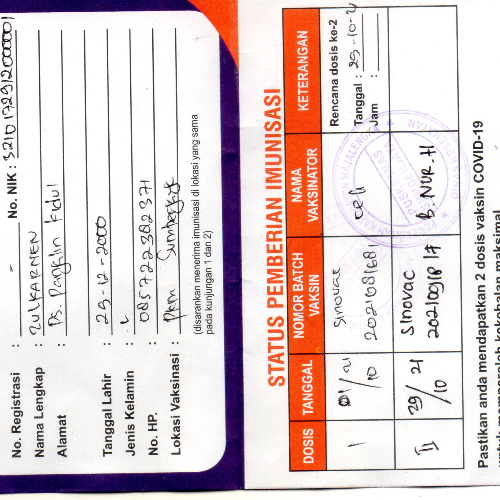 No. Registrasi : -
No. NIK : 3210172912000001
Nama Lengkap : ZULKARNEN
Alamat : Ds. Panglin Fidul
Tanggal Lahir : 29-12-2000
Jenis Kelamin : L
No. HP. : 085722382371
Lokasi Vaksinasi :
(disarankan menerima imunisasi di lokasi yang sama
pada kunjungan 1 dan 2)
STATUS PEMBERIAN IMUNISASI
DOSIS TANGGAL NOMOR BATCH VAKSIN NAMA VAKSINATOR KETERANGAN
I 01/10 21 Sinovac 2021081681 celi Rencana dosis ke-2
Tanggal : 29-10-2
Jam :
II 29/10 21 Sinovac B. NUR. H
Pastikan anda mendapatkan 2 dosis vaksin COVID-19